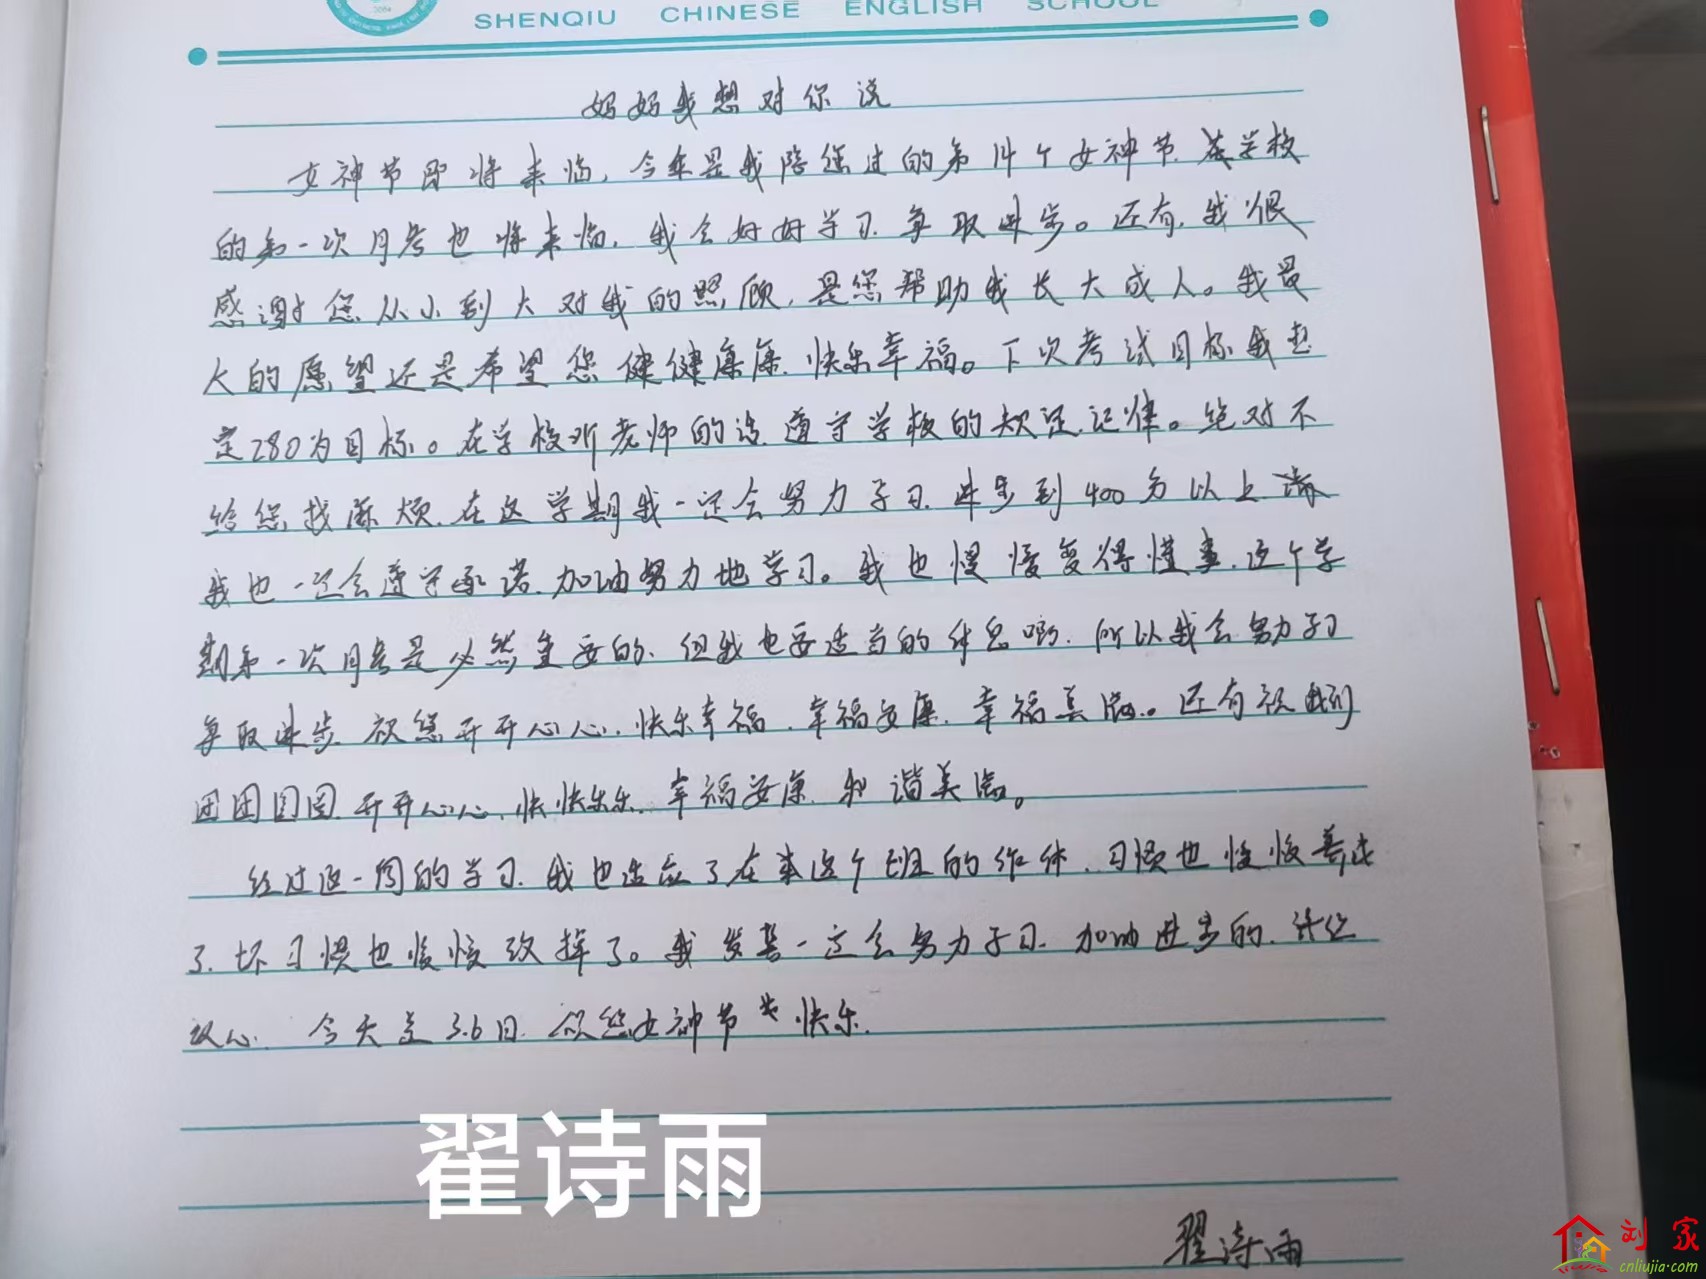 SHENQIU CHINESE ENGLISH SCHOOL
妈妈我想对你说
女神节即将来临，今年是我陪您过的第14个女神节，学校
的第一次月考也将来临，我会好好学习，争取进步。还有，我很
感谢您从小到大对我的照顾，是您帮助我长大成人。我最
大的愿望还是希望您健健康康，快乐幸福。下次考试目标我想
定280为目标。在学校听老师的话，遵守学校的规定，记律。绝对不
给您找麻烦，在这学期我一定会努力学习，进步到400分以上，
我也一定会遵守承诺，加油努力地学习。我也慢慢变得懂事，这个学
期第一次月考是必然重要的，但我也要适当的休息哟，所以我会努力学习
争取进步，祝您开开心心，快乐幸福，幸福安康，幸福美满。还有祝我们
团团圆圆，开开心心，快快乐乐，幸福安康，和谐美满。
经过这一周的学习，我也适应了在来这个班的作休，习惯也慢慢养成
了，坏习惯也慢慢改掉了。我发誓一定会努力学习，加油进步的，请您
放心，今天是3.6日，祝您女神节快乐。
翟诗雨
翟诗雨
刘家
cnliujia.com